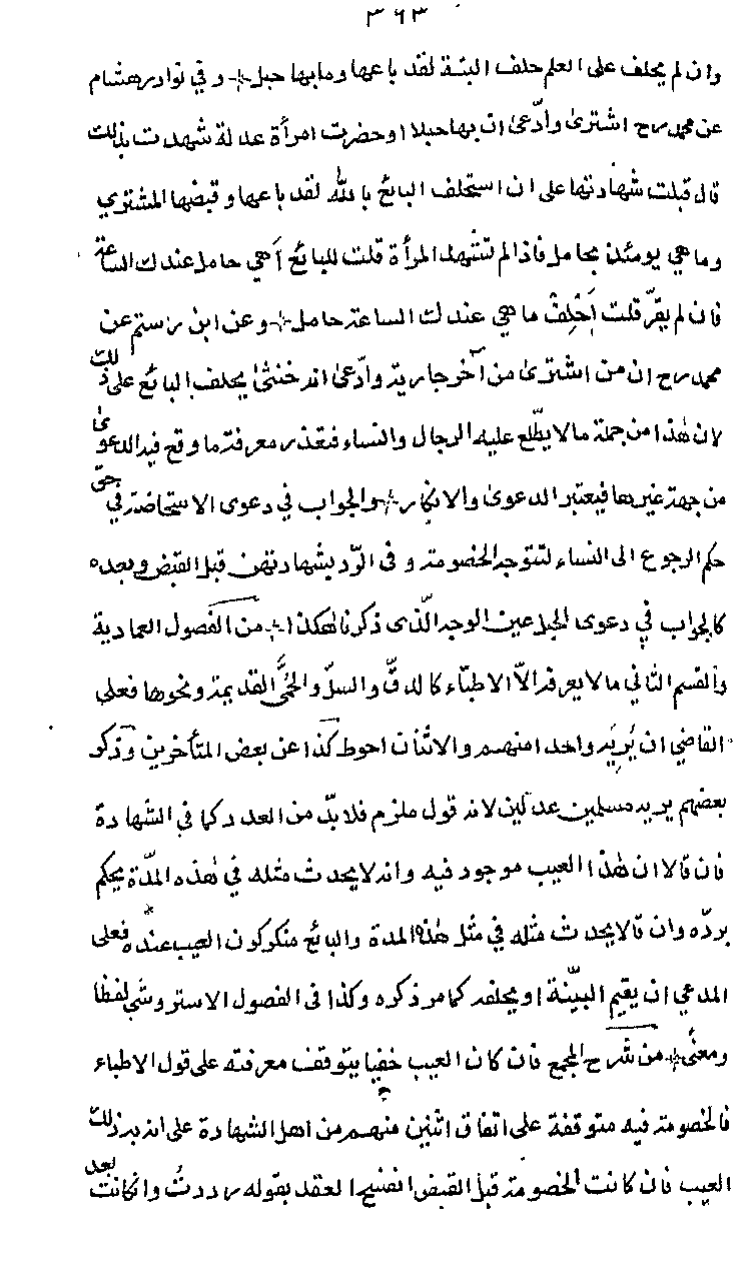 ٣٦٣
وان لم يحلف على العلم حلف البتة لقد باعها وما بها حبل وفي نوادر هشام
عن محمد رح اشترى وادّعى ان بها حبلا او حضرت امرأة عدلة شهدت بذلك
قال قبلت شهادتها على ان استحلف البائع بالله لقد باعها وقبضها المشتري
وما هي يومئذ بحامل فاذا لم تشهد المرأة قلت للبائع أهي حامل عندك الساعة
فان لم يقرّ قلت أحلف ما هي عندك الساعة حامل وعن ابن رستم عن
محمد رح ان من اشترى من آخر جارية وادّعى انه خنثى يحلف البائع على ذلك
لان هٰذا من جملة ما لا يطّلع عليه الرجال والنساء فتعذر معرفة ما وقع فيه الدعوىٰ
من جهة غيرها فيعتبر الدعوى والانكار والجواب في دعوى الاستحاضة في حقّ
حكم الرجوع الى النساء لتتوجه الخصومة وفى الرّد بشهادتهن قبل القبض وبعده
كالجواب في دعوى الحبل عين الوجه الّذى ذكرنا هٰكذا من الفصول العمادية
والقسم الثاني ما لا يعرفه الاّ الاطبّاء كالدقّ والسلّ والحمّى القديمة ونحوها فعلى
القاضي ان يريه واحدا منهم والاثنان احوط كذا عن بعض المتأخرين وذكر
بعضهم يريه مسلمين عدلين لانه قول ملزم فلا بدّ من العدد كما في الشهادة
فان قالا ان هٰذا العيب موجود فيه وانه لا يحدث مثله في هٰذه المدّة يحكم
بردّه وان قالا يحدث مثله في مثل هٰذه المدة والبائع منكر كون العيب عنده فعلى
المدعي ان يقيم البيّنة او يحلفه كما مر ذكره وكذا فى الفصول الاستروشني لفظا
ومعنًى من شرح المجمع فان كان العيب خفيا يتوقف معرفته على قول الاطباء
فالخصومة فيه متوقفة على اتفاق اثنين منهم من اهل الشهادة على انه به ذلك
العيب فان كانت الخصومة قبل القبض انفسخ العقد بقوله رددتُ وان كانت بعد